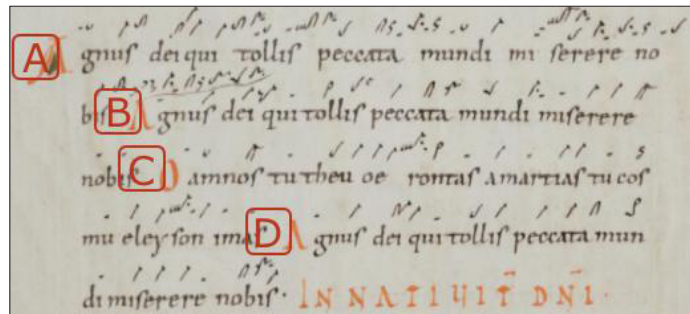 A Agnus dei qui tollis peccata mundi mi serere no
bis B Agnus dei qui tollis peccata mundi miserere
nobis C O amnos tu theu oe rontas amartias tu cos
mu eleyson imas D Agnus dei qui tollis peccata mun
di miserere nobis· IN NATIUIT̄ DN̄I·